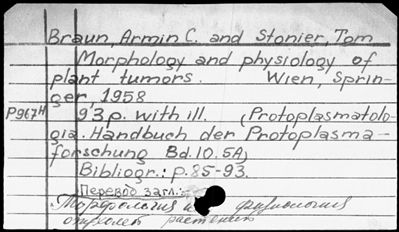 Braun, Armin C. and Stonier, Tom
Morphology and physiology of
plant tumors. Wien, Sprin-
ger, 1958
P967H 93 p. with ill. (Protoplasmatolo-
gia. Handbuch der Protoplasma-
forschung Bd. 10. 5A)
Bibliogr.: p. 85-93.
Перевод загл.:
Морфология и физиология
опухолей растений